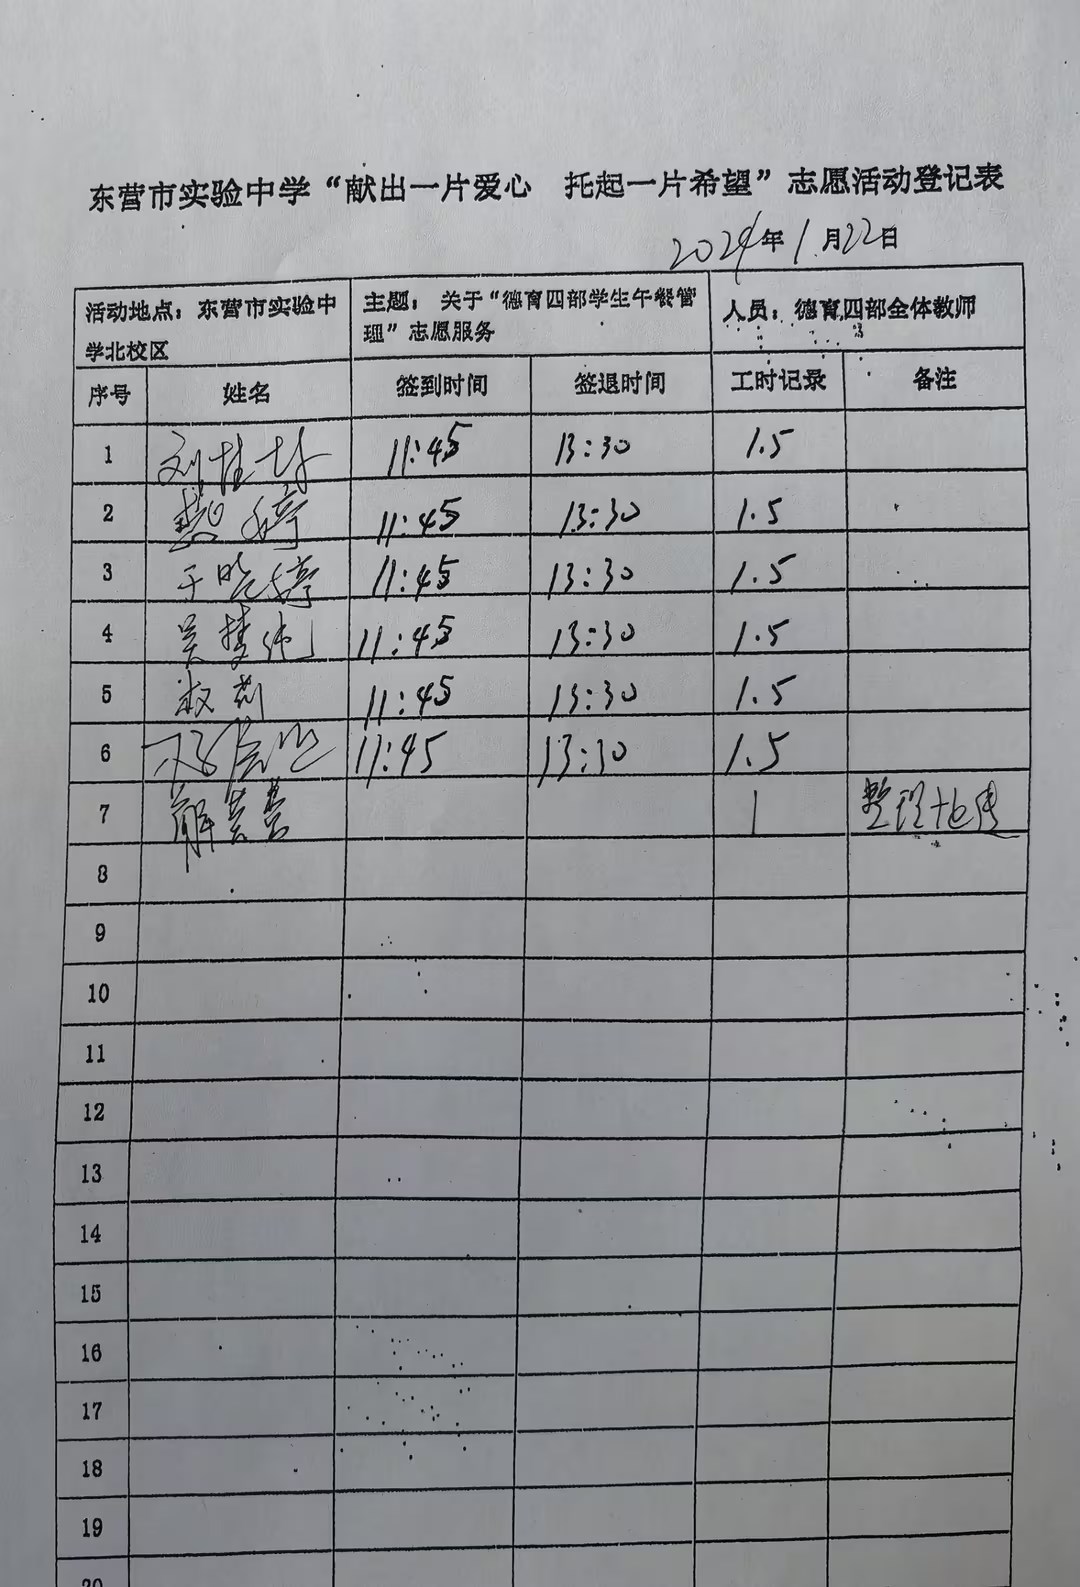 东营市实验中学“献出一片爱心 托起一片希望”志愿活动登记表
2024年1月22日
活动地点：东营市实验中学北校区 主题：关于“德育四部学生午餐管理”志愿服务 人员：德育四部全体教师
序号 姓名 签到时间 签退时间 工时记录 备注
1 刘 11:45 13:30 1.5
2 婷 11:45 13:30 1.5
3 于晓婷 11:45 13:30 1.5
4 吴梦 11:45 13:30 1.5
5 11:45 13:30 1.5
6 11:45 13:30 1.5
7 解 1 整理
8
9
10
11
12
13
14
15
16
17
18
19
20